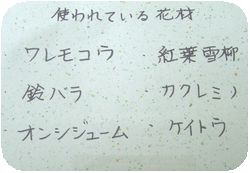 使われている花材
ワレモコウ 紅葉雪柳
鈴バラ カクレミノ
オンシジューム ケイトウ